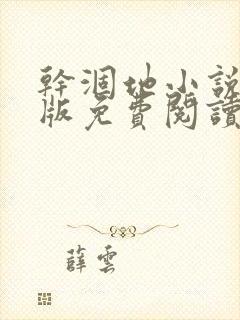 幹涸地小說
版免費閱讀
薛雲